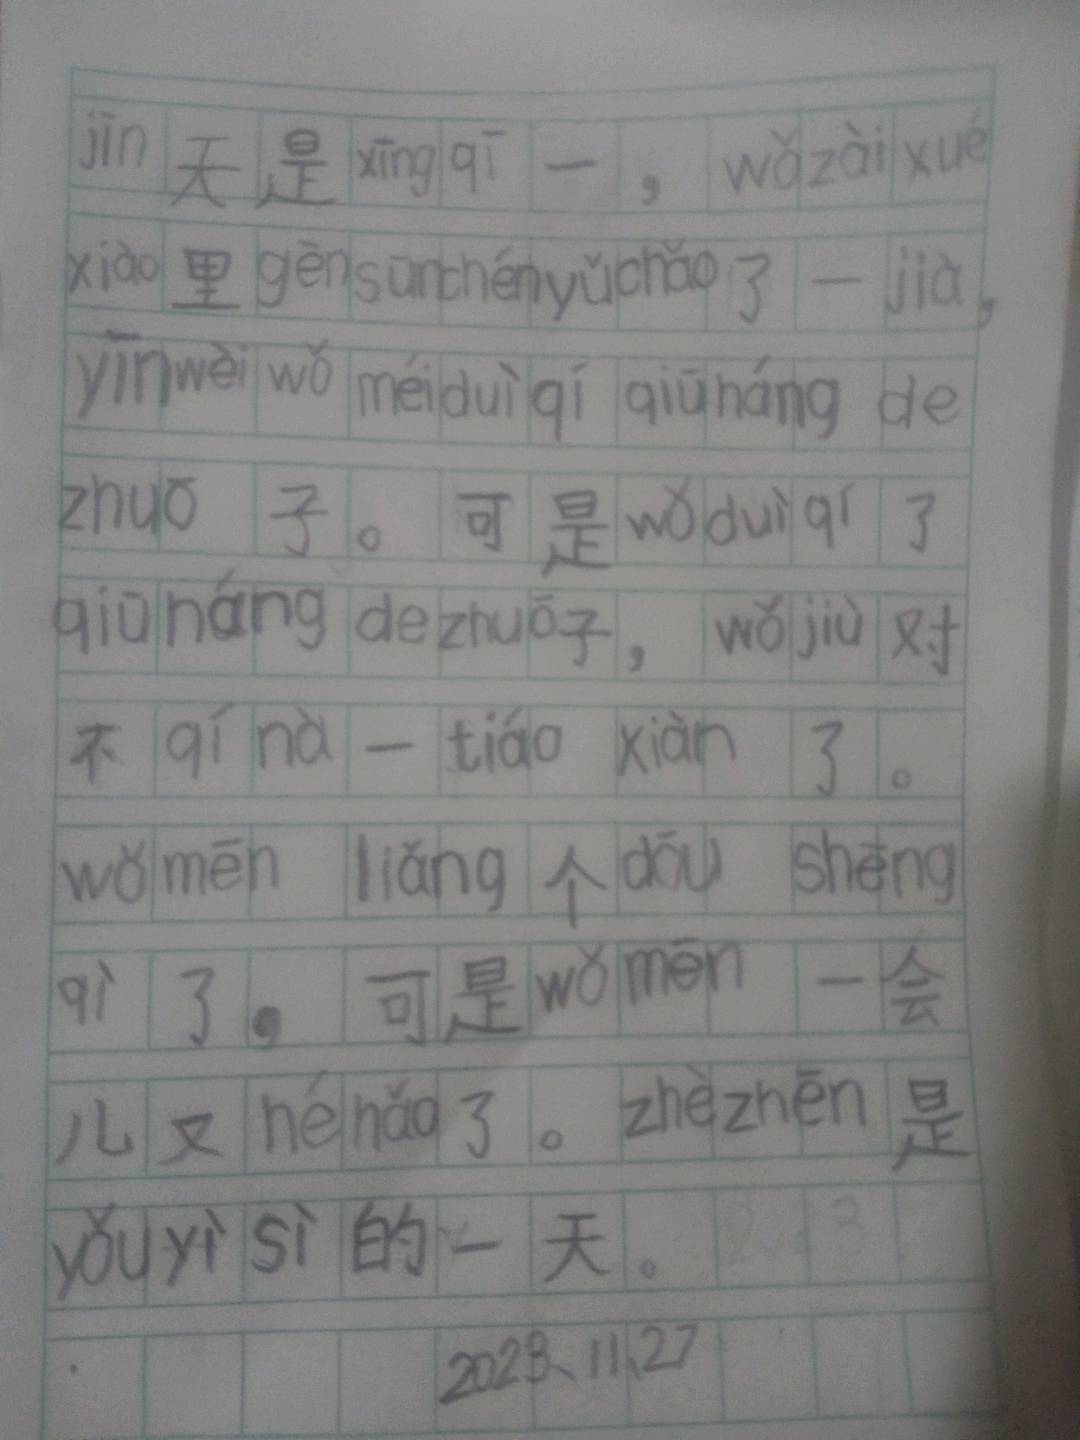 jīn 天是 xīng qī 一，wǒ zài xué
xiào 里 gēn sūn chén yǔ chǎo 了一 jià，
yīn wèi wǒ méi duì qí qiū háng de
zhuō 子。可是 wǒ duì qí 了
qiū háng de zhuō 子，wǒ jiù 对
不 qí nà 一 tiáo xiàn 了。
wǒ mēn liǎng 个 dōu shēng
qì 了。可是 wǒ mēn 一会
儿又 hé hǎo 了。zhè zhēn 是
yǒu yì sì 的一天。
2023、11、27